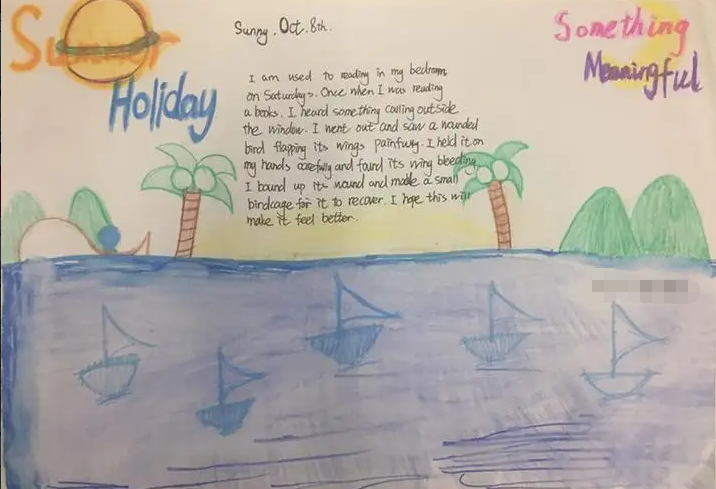 Summer
Holiday
Sunny. Oct. 8th.
Something
Meaningful
I am used to reading in my bedroom
on Saturdays. Once when I was reading
a books. I heard something calling outside
the window. I went out and saw a wounded
bird flapping its wings painfully. I held it on
my hands carefully and found its wing bleeding.
I bound up its wound and made a small
birdcage for it to recover. I hope this will
make it feel better.